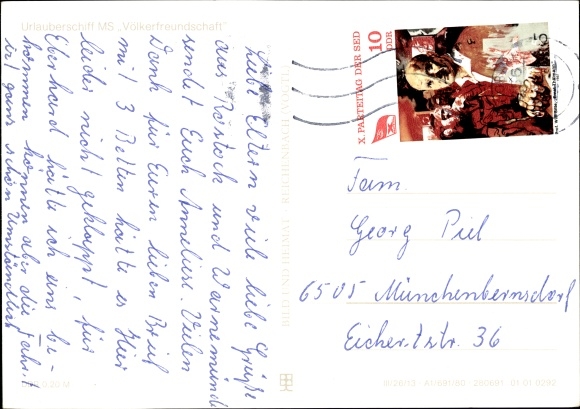 Urlauberschiff MS „Völkerfreundschaft"
Liebe Eltern viele liebe Grüße
aus Rostock und Warnemünde
sendet Euch Anneliese Vielen
Dank für Euren lieben Brief
mit 3 Betten hätte es hier
leider nicht geklappt, für
Eberhard hätte ich eins be-
kommen können aber die Fahr.
ist ganz schön umständlich
DDR 0,20 M
BILD UND HEIMAT REICHENBACH VOGTL.
X. PARTEITAG DER SED
10
DDR
Fam.
Georg Piel
6505 Münchenbernsdorf
Eichertstr. 36
III/26/13 A1/681/80 280691 01 01 0292